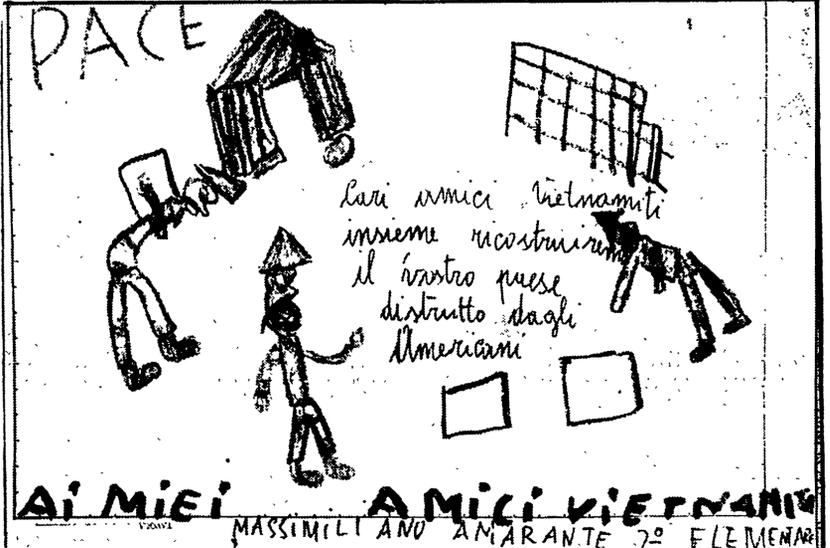 PACE
Cari amici Vietnamiti
insieme ricostruirem
il vostro paese
distrutto dagli
Americani
Ai MiEi AMiCi ViETNAMiTi
MASSIMILIANO AMARANTE 2º ELEMENTARE